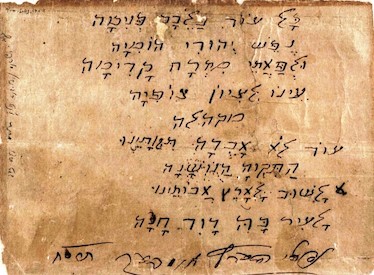 כל עוד בלבב פנימה
נפש יהודי הומיה
ולפאתי מזרח קדימה
עינו לציון צופיה
מקהלה
עוד לא אבדה תקותינו
התקוה הנושנה
לשוב לארץ אבותינו
לעיר בה דוד חנה
נפתלי הערץ אימבער